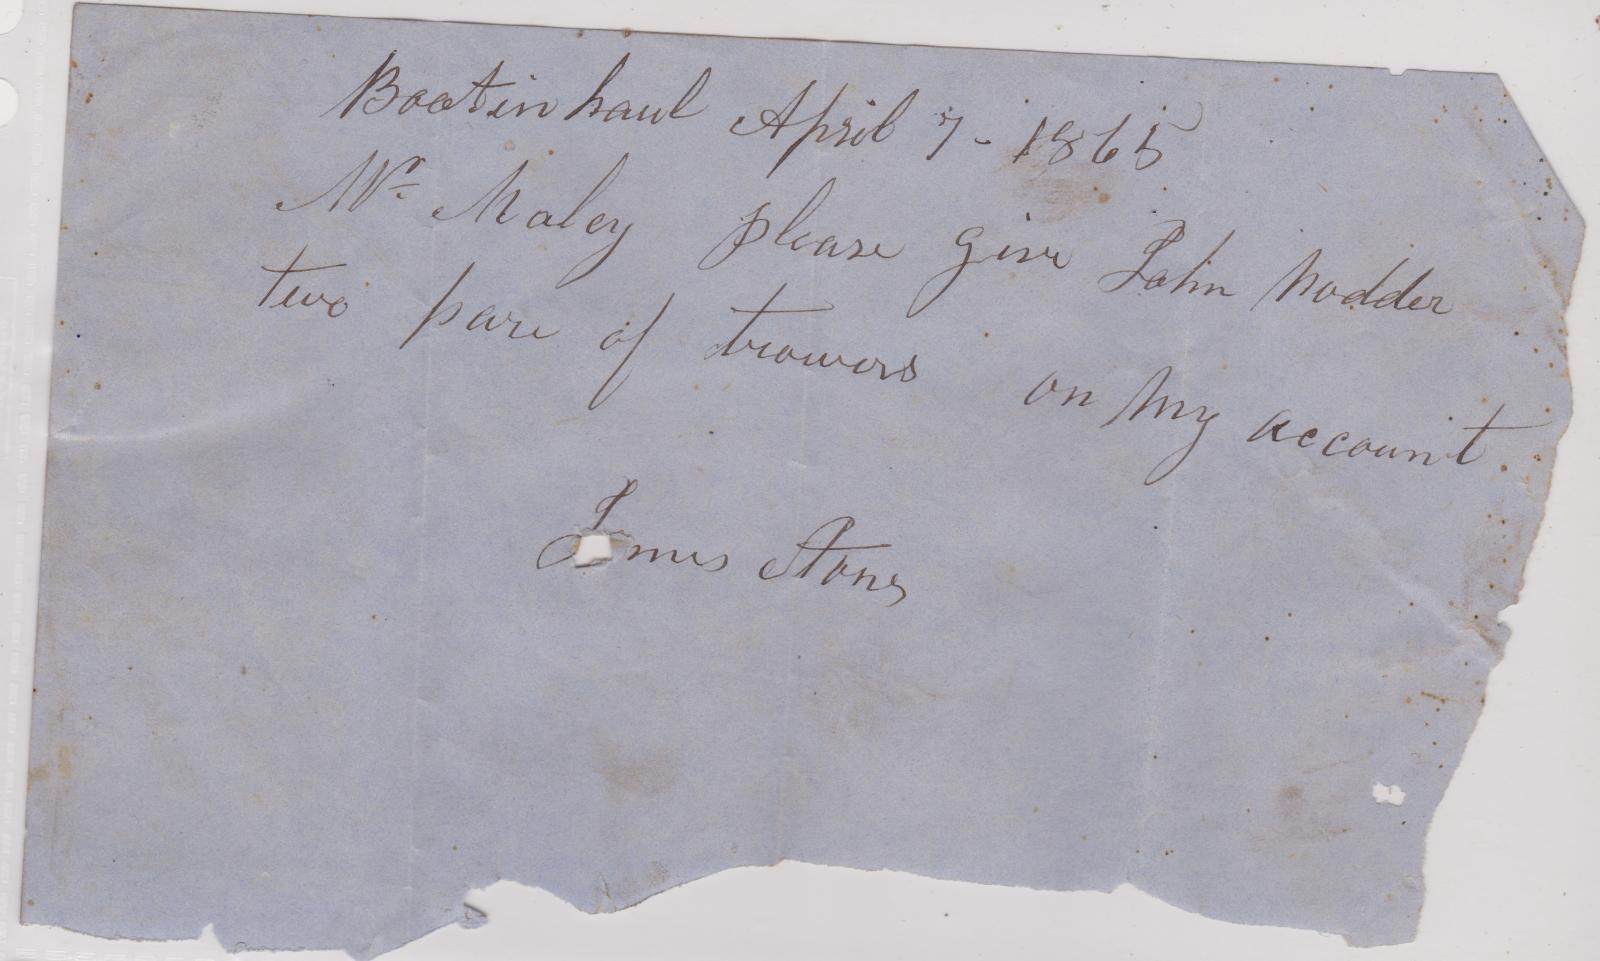 Bootinhaul April 7 - 1865
Mr Maley please give John Nodder
two pare of trowers on My account
James Stone